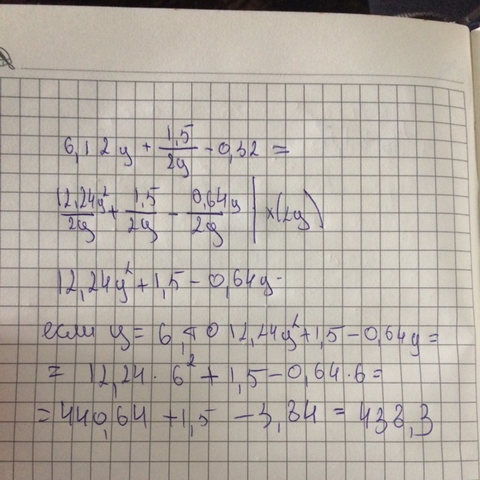 6,12y + 1,5/2y - 0,32 =
12,24y²/2y + 1,5/2y - 0,64y/2y | x(2y)
12,24y² + 1,5 - 0,64y =
если y = 6, то 12,24y² + 1,5 - 0,64y =
= 12,24 · 6² + 1,5 - 0,64 · 6 =
= 440,64 + 1,5 - 3,84 = 438,3